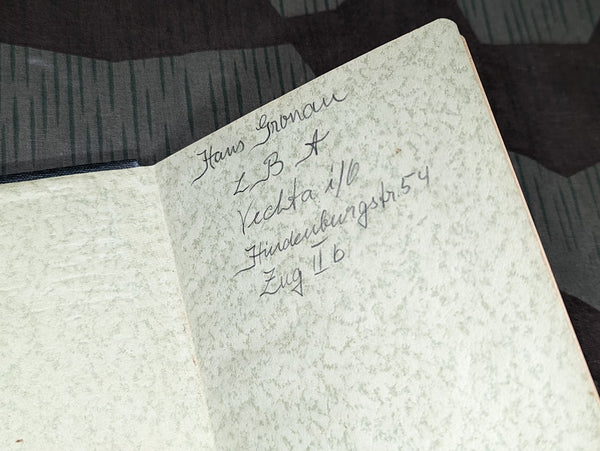 Hans Gronau
L B A
Vechta i/O
Hindenburgstr 54
Zug II b